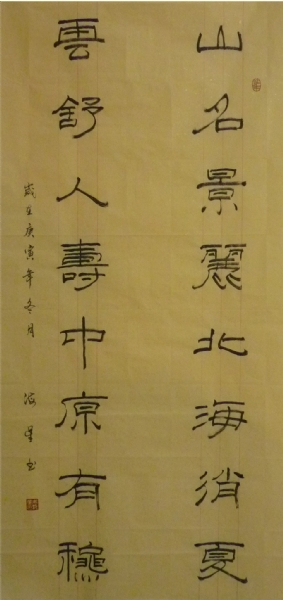 山名景麗北海消夏
雲舒人壽中原有穐
歲在庚寅年冬月
星书